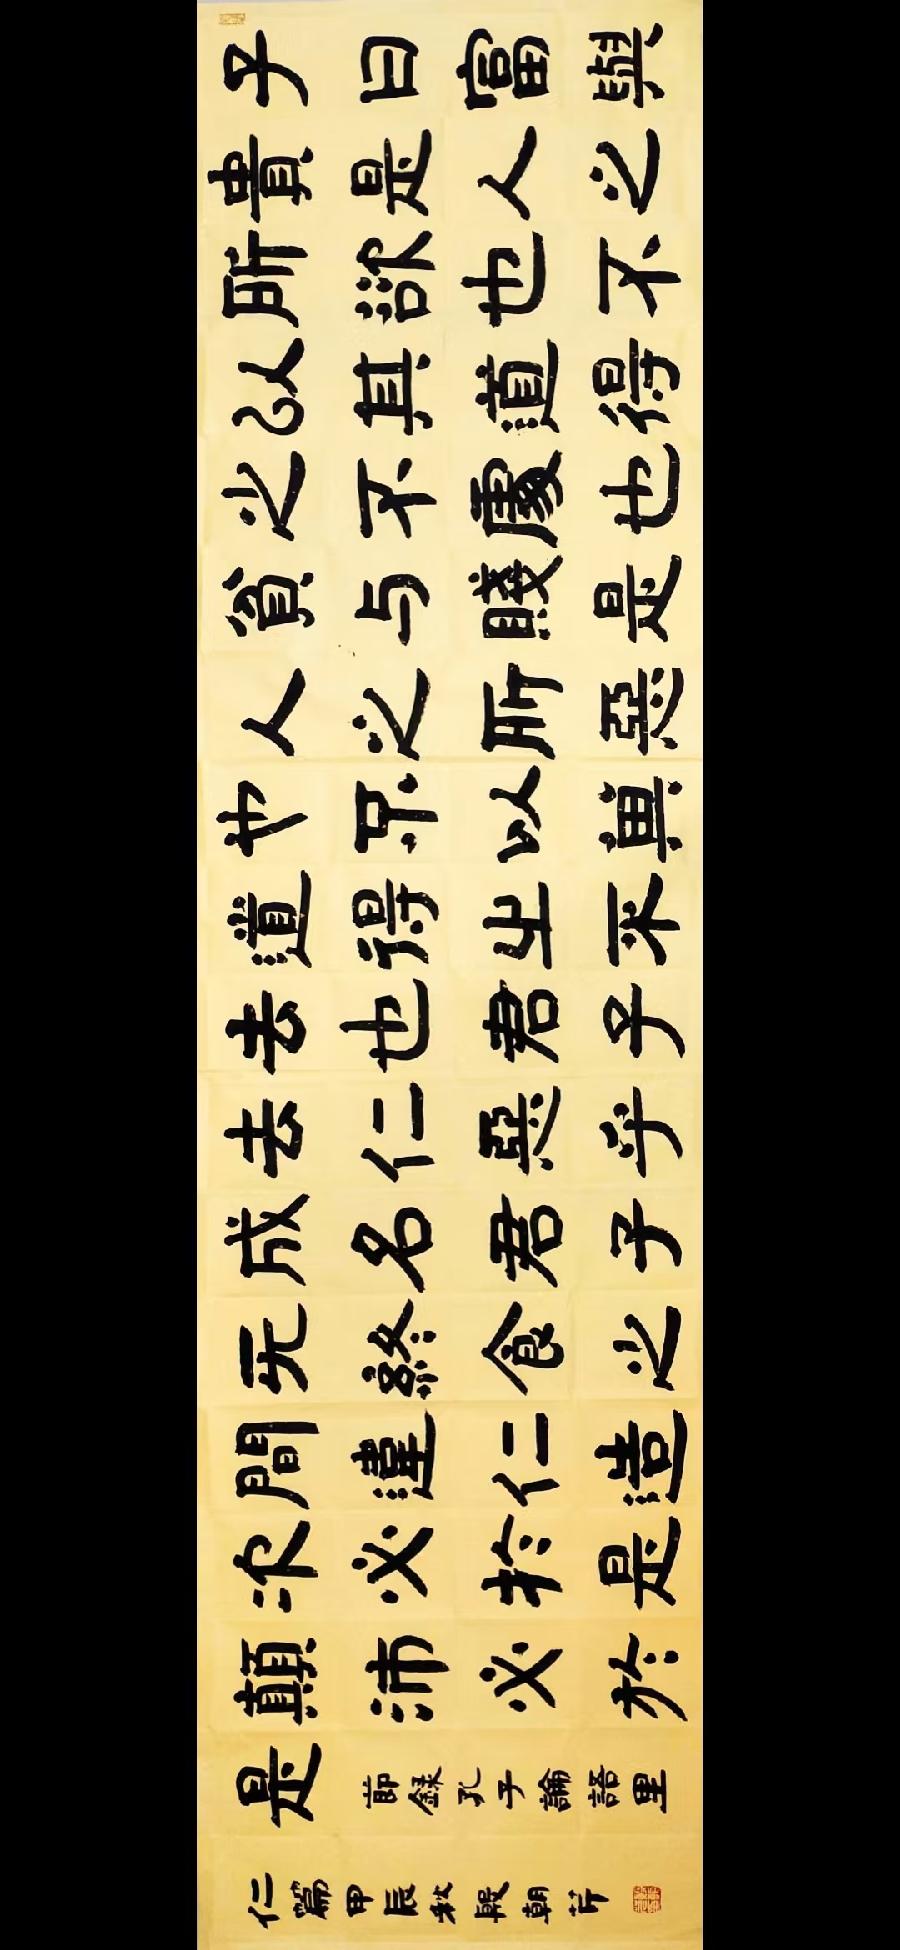 子曰富與
貴是人之
所欲也不
以其道得
之不處也
貧与賤是
人之所惡
也不以其
道得之不
去也君子
去仁惡乎
成名君子
无終食之
間違仁造
次必於是
顛沛必於
是
節錄孔子論語里
仁篇甲辰秋段朝芹